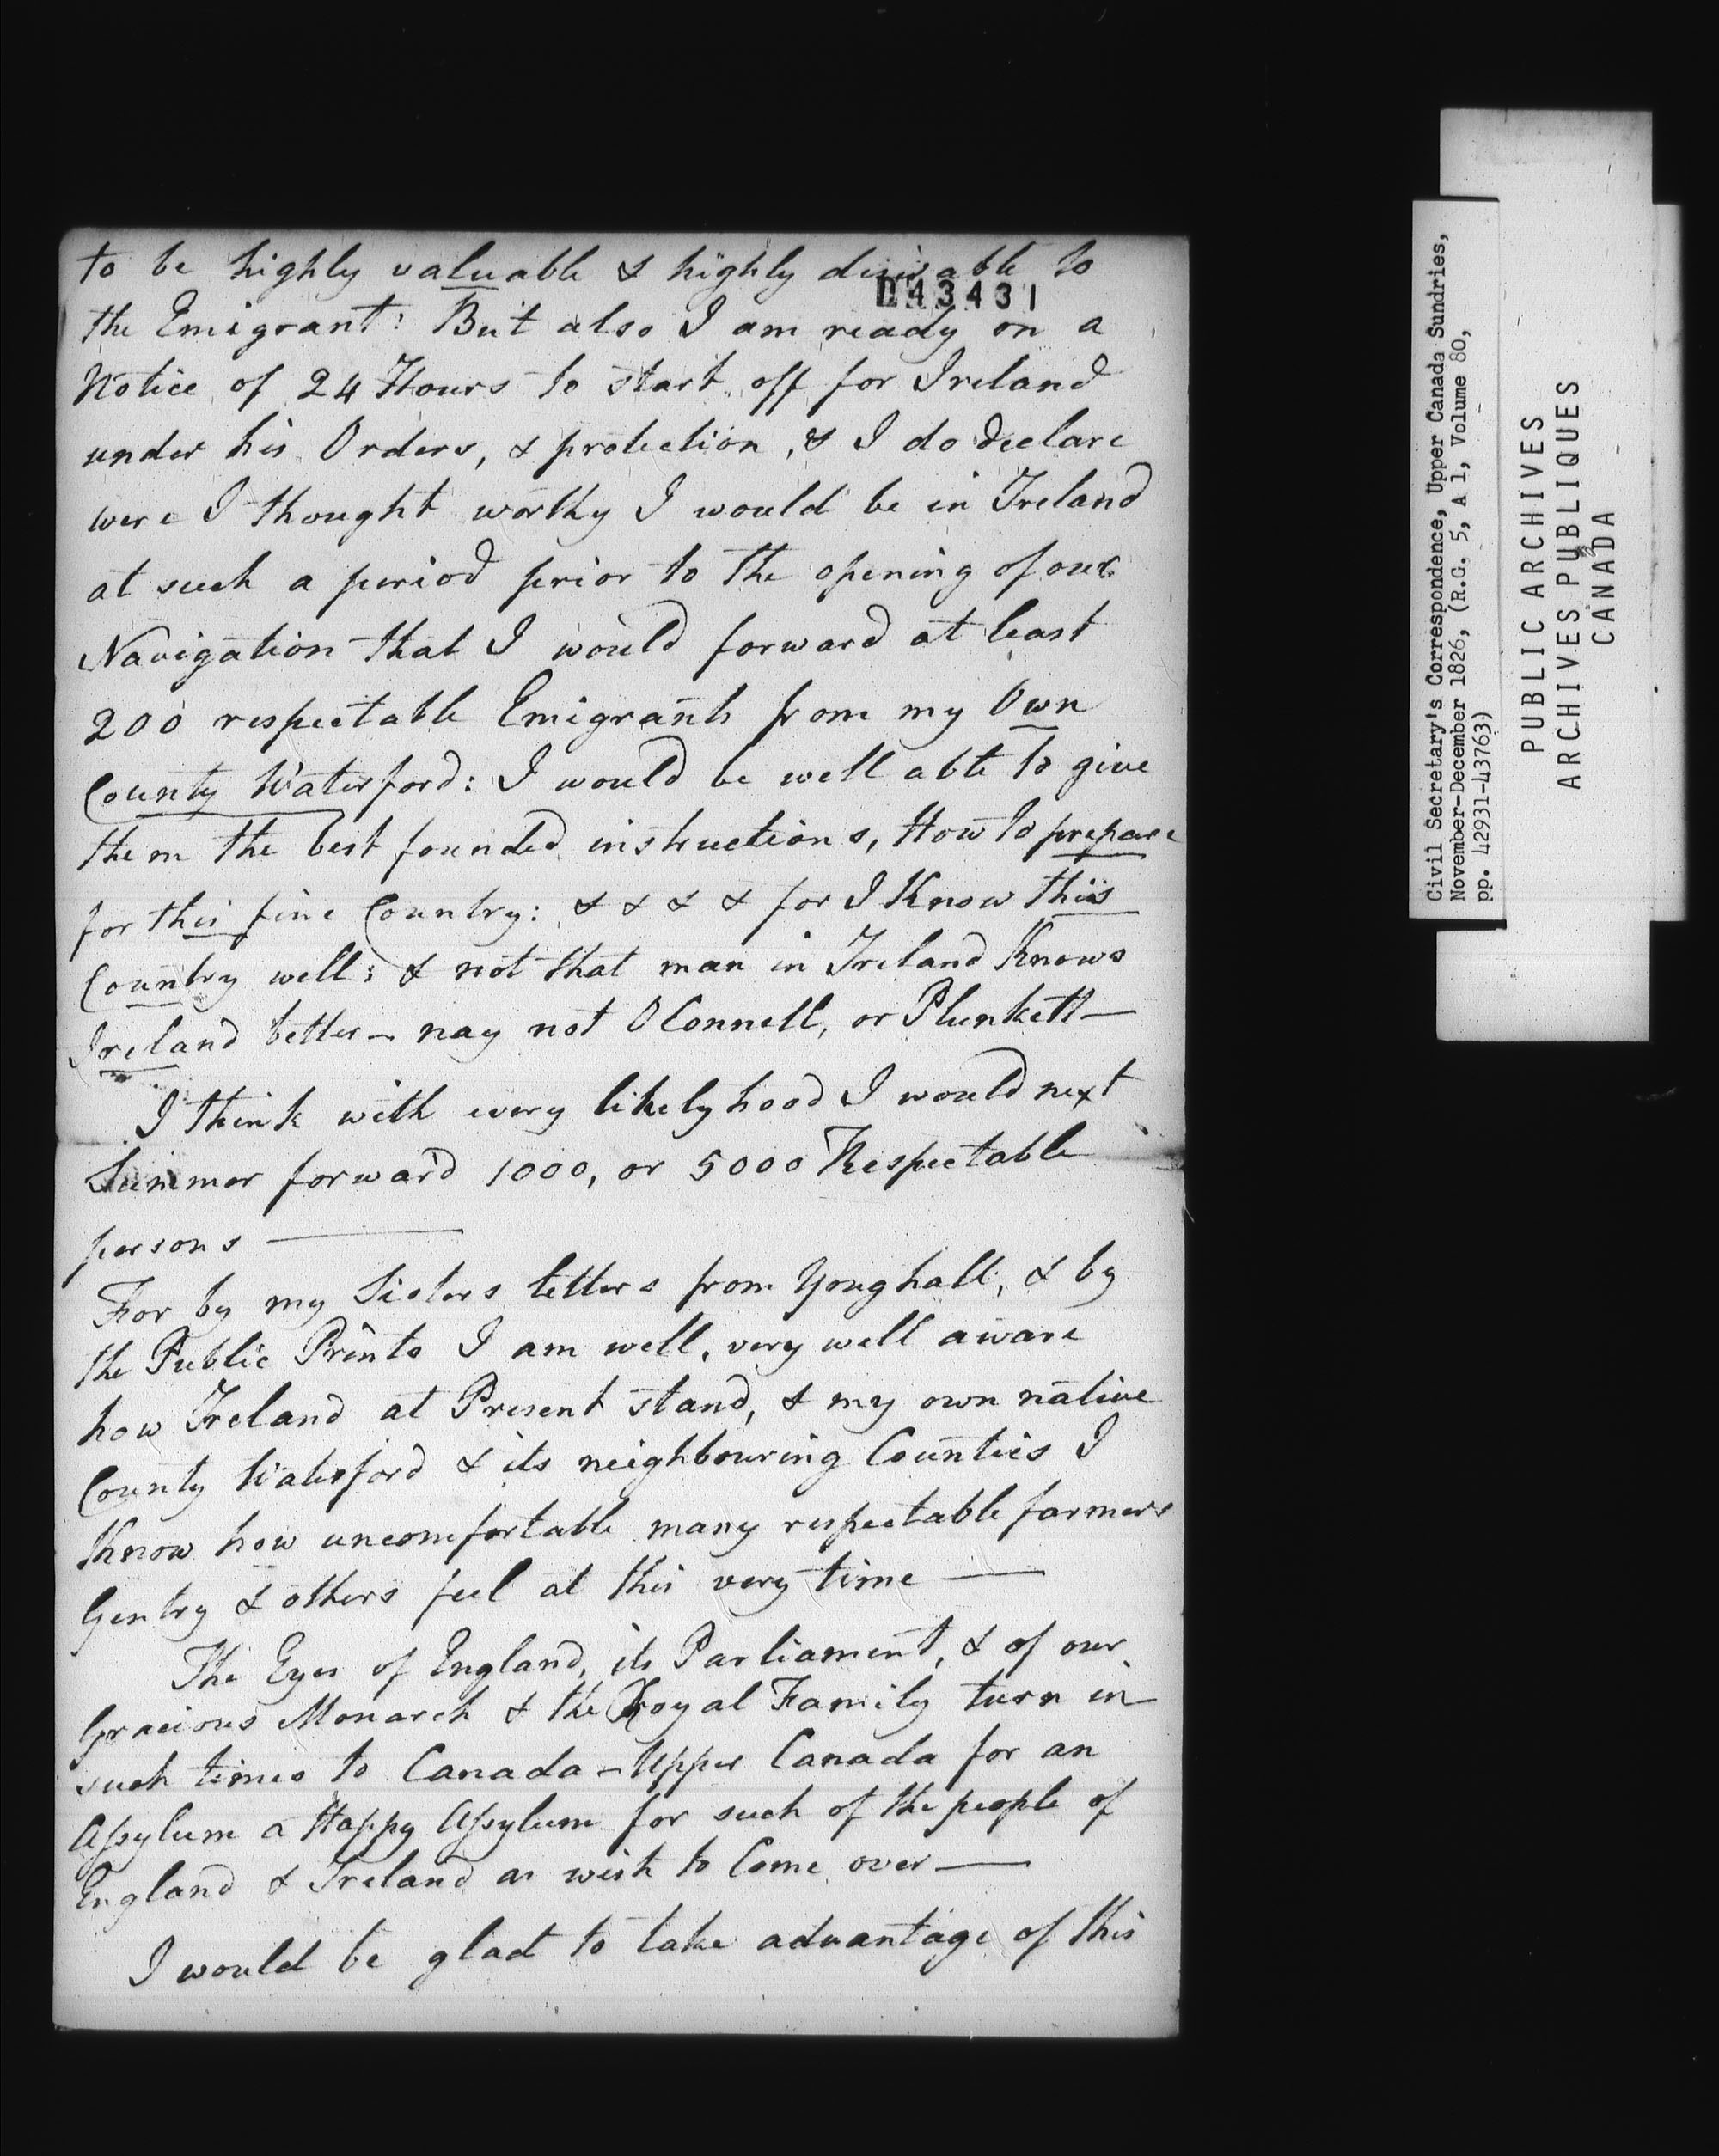 to be highly valuable & highly desirable to
043431
the Emigrant: But also I am ready on a
Notice of 24 Hours to start off for Ireland
under his Orders, & protection, & I do declare
were I thought worthy I would be in Ireland
at such a period prior to the opening of our
Navigation that I would forward at least
200 respectable Emigrants from my Own
County Waterford: I would be well able to give
them the best founded instructions, How to prepare
for this fine Country: & & & & for I Know this
Country well: & not that man in Ireland Knows
Ireland better - nay not OConnell, or Plunkett —
I think with every likelyhood I would next
Summer forward 1000, or 5000 Respectable
persons —
For by my Sisters letters from Youghall, & by
the Public Prints I am well, very well aware
how Ireland at Present stand, & my own native
County Waterford & its neighbouring Counties I
Know how uncomfortable many respectable farmers
Gentry & others feel at this very time —
The Eyes of England, its Parliament, & of our
Gracious Monarch & the Royal Family turn in
such times to Canada - Upper Canada for an
Assylum a Happy Assylum for such of the people of
England & Ireland as wish to Come over —
I would be glad to take advantage of this
Civil Secretary's Correspondence, Upper Canada Sundries,
November-December 1826, (R.G. 5, A 1, Volume 80,
pp. 42931-43763)
PUBLIC ARCHIVES
ARCHIVES PUBLIQUES
CANADA